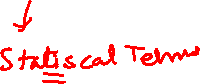 Statiscal Telms